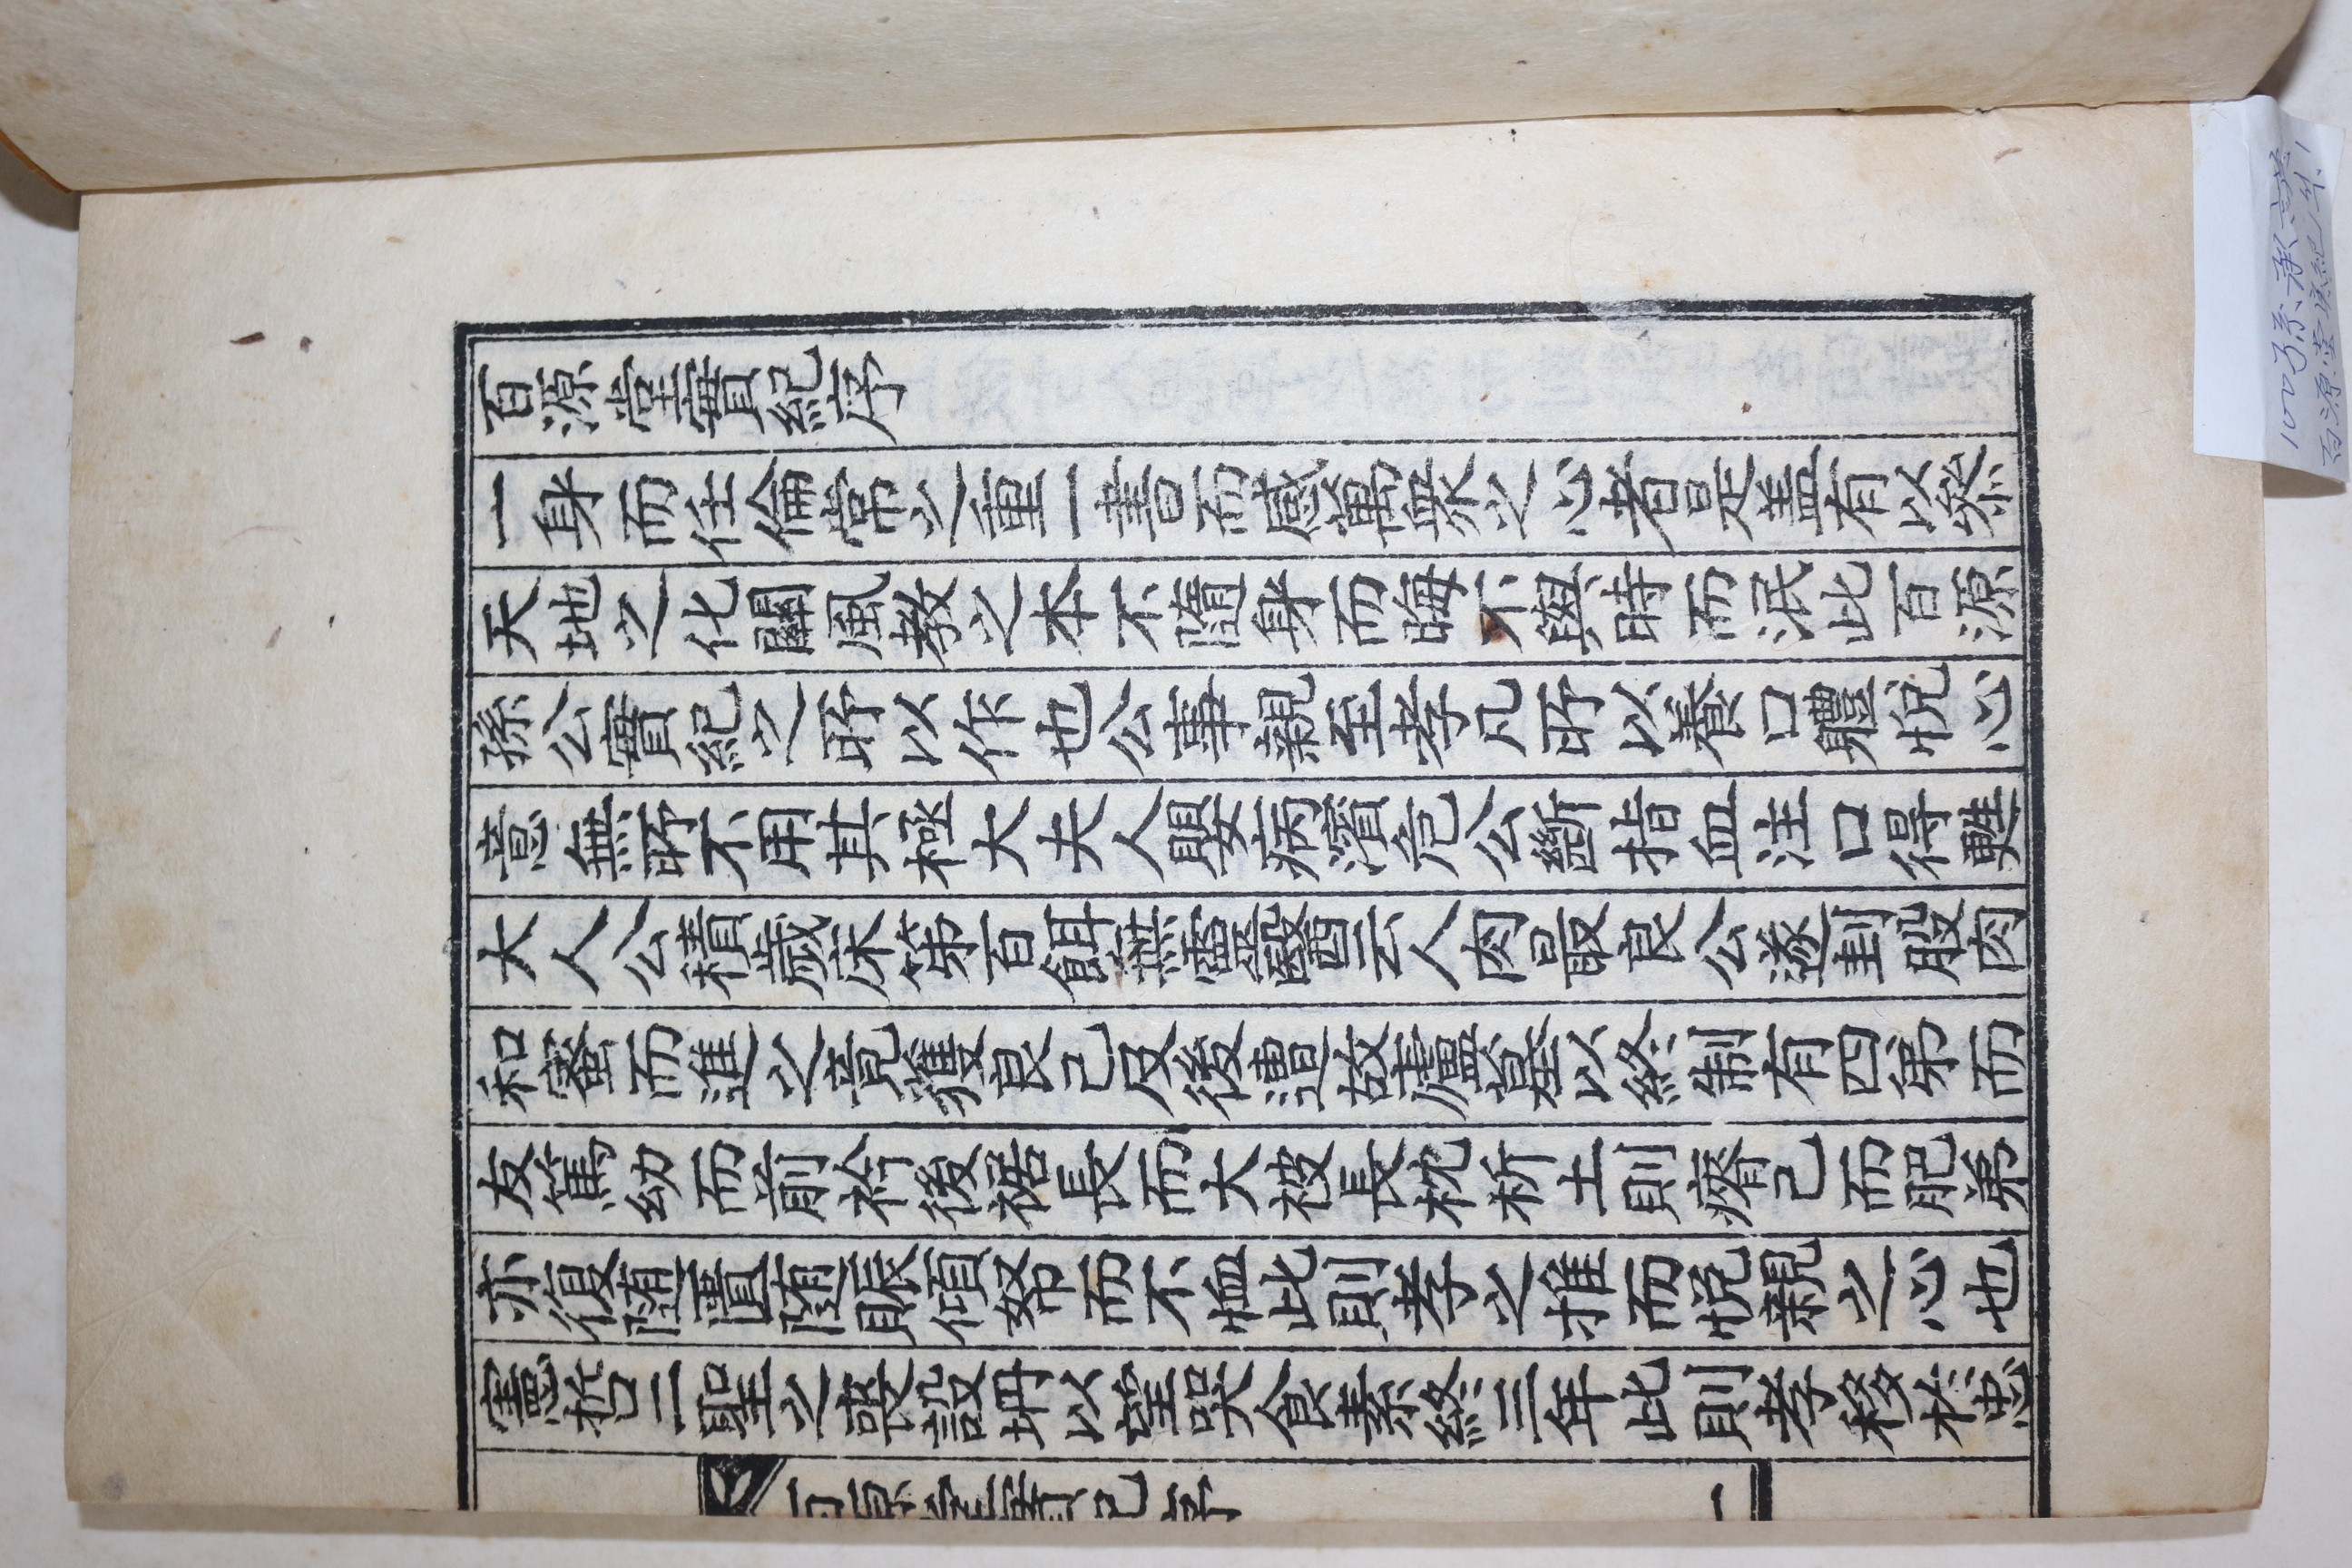 百源堂實紀序
一身而任倫常之重一書而感萬衆之心者是盖有以叅
天地之化關風教之本不隨身而晦不與時而泯此百源
孫公實紀之所以作也公事親至孝凡所以養口體悅心
意無所不用其極大夫人嬰病濱危公斷指血注口得甦
大人公積歲床第百餌無靈醫云人肉最良公遂刲股肉
和蜜而進之竟獲良已及後遭故廬墓以終制有四弟而
友篤幼而前衿後裾長而大被長枕析土則瘠己而肥弟
亦復隨匱隨賑傾帑而不恤此則孝之推而悅親之心也
寔於二聖之諱設壇以望哭食素終三年此則孝移於忠
百源堂實紀序 一
百源堂實紀